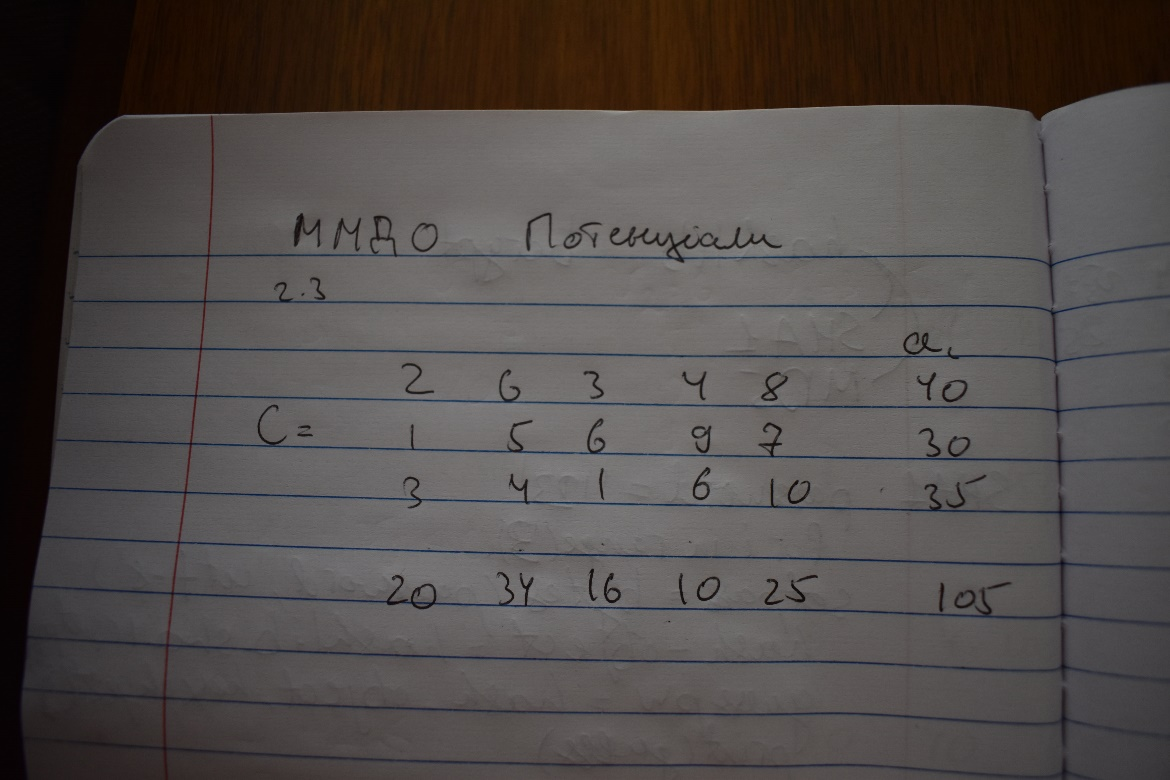 ММДО Потенціали
2.3
aᵢ
2 6 3 4 8 40
C = 1 5 6 9 7 30
3 4 1 6 10 35
20 34 16 10 25 105